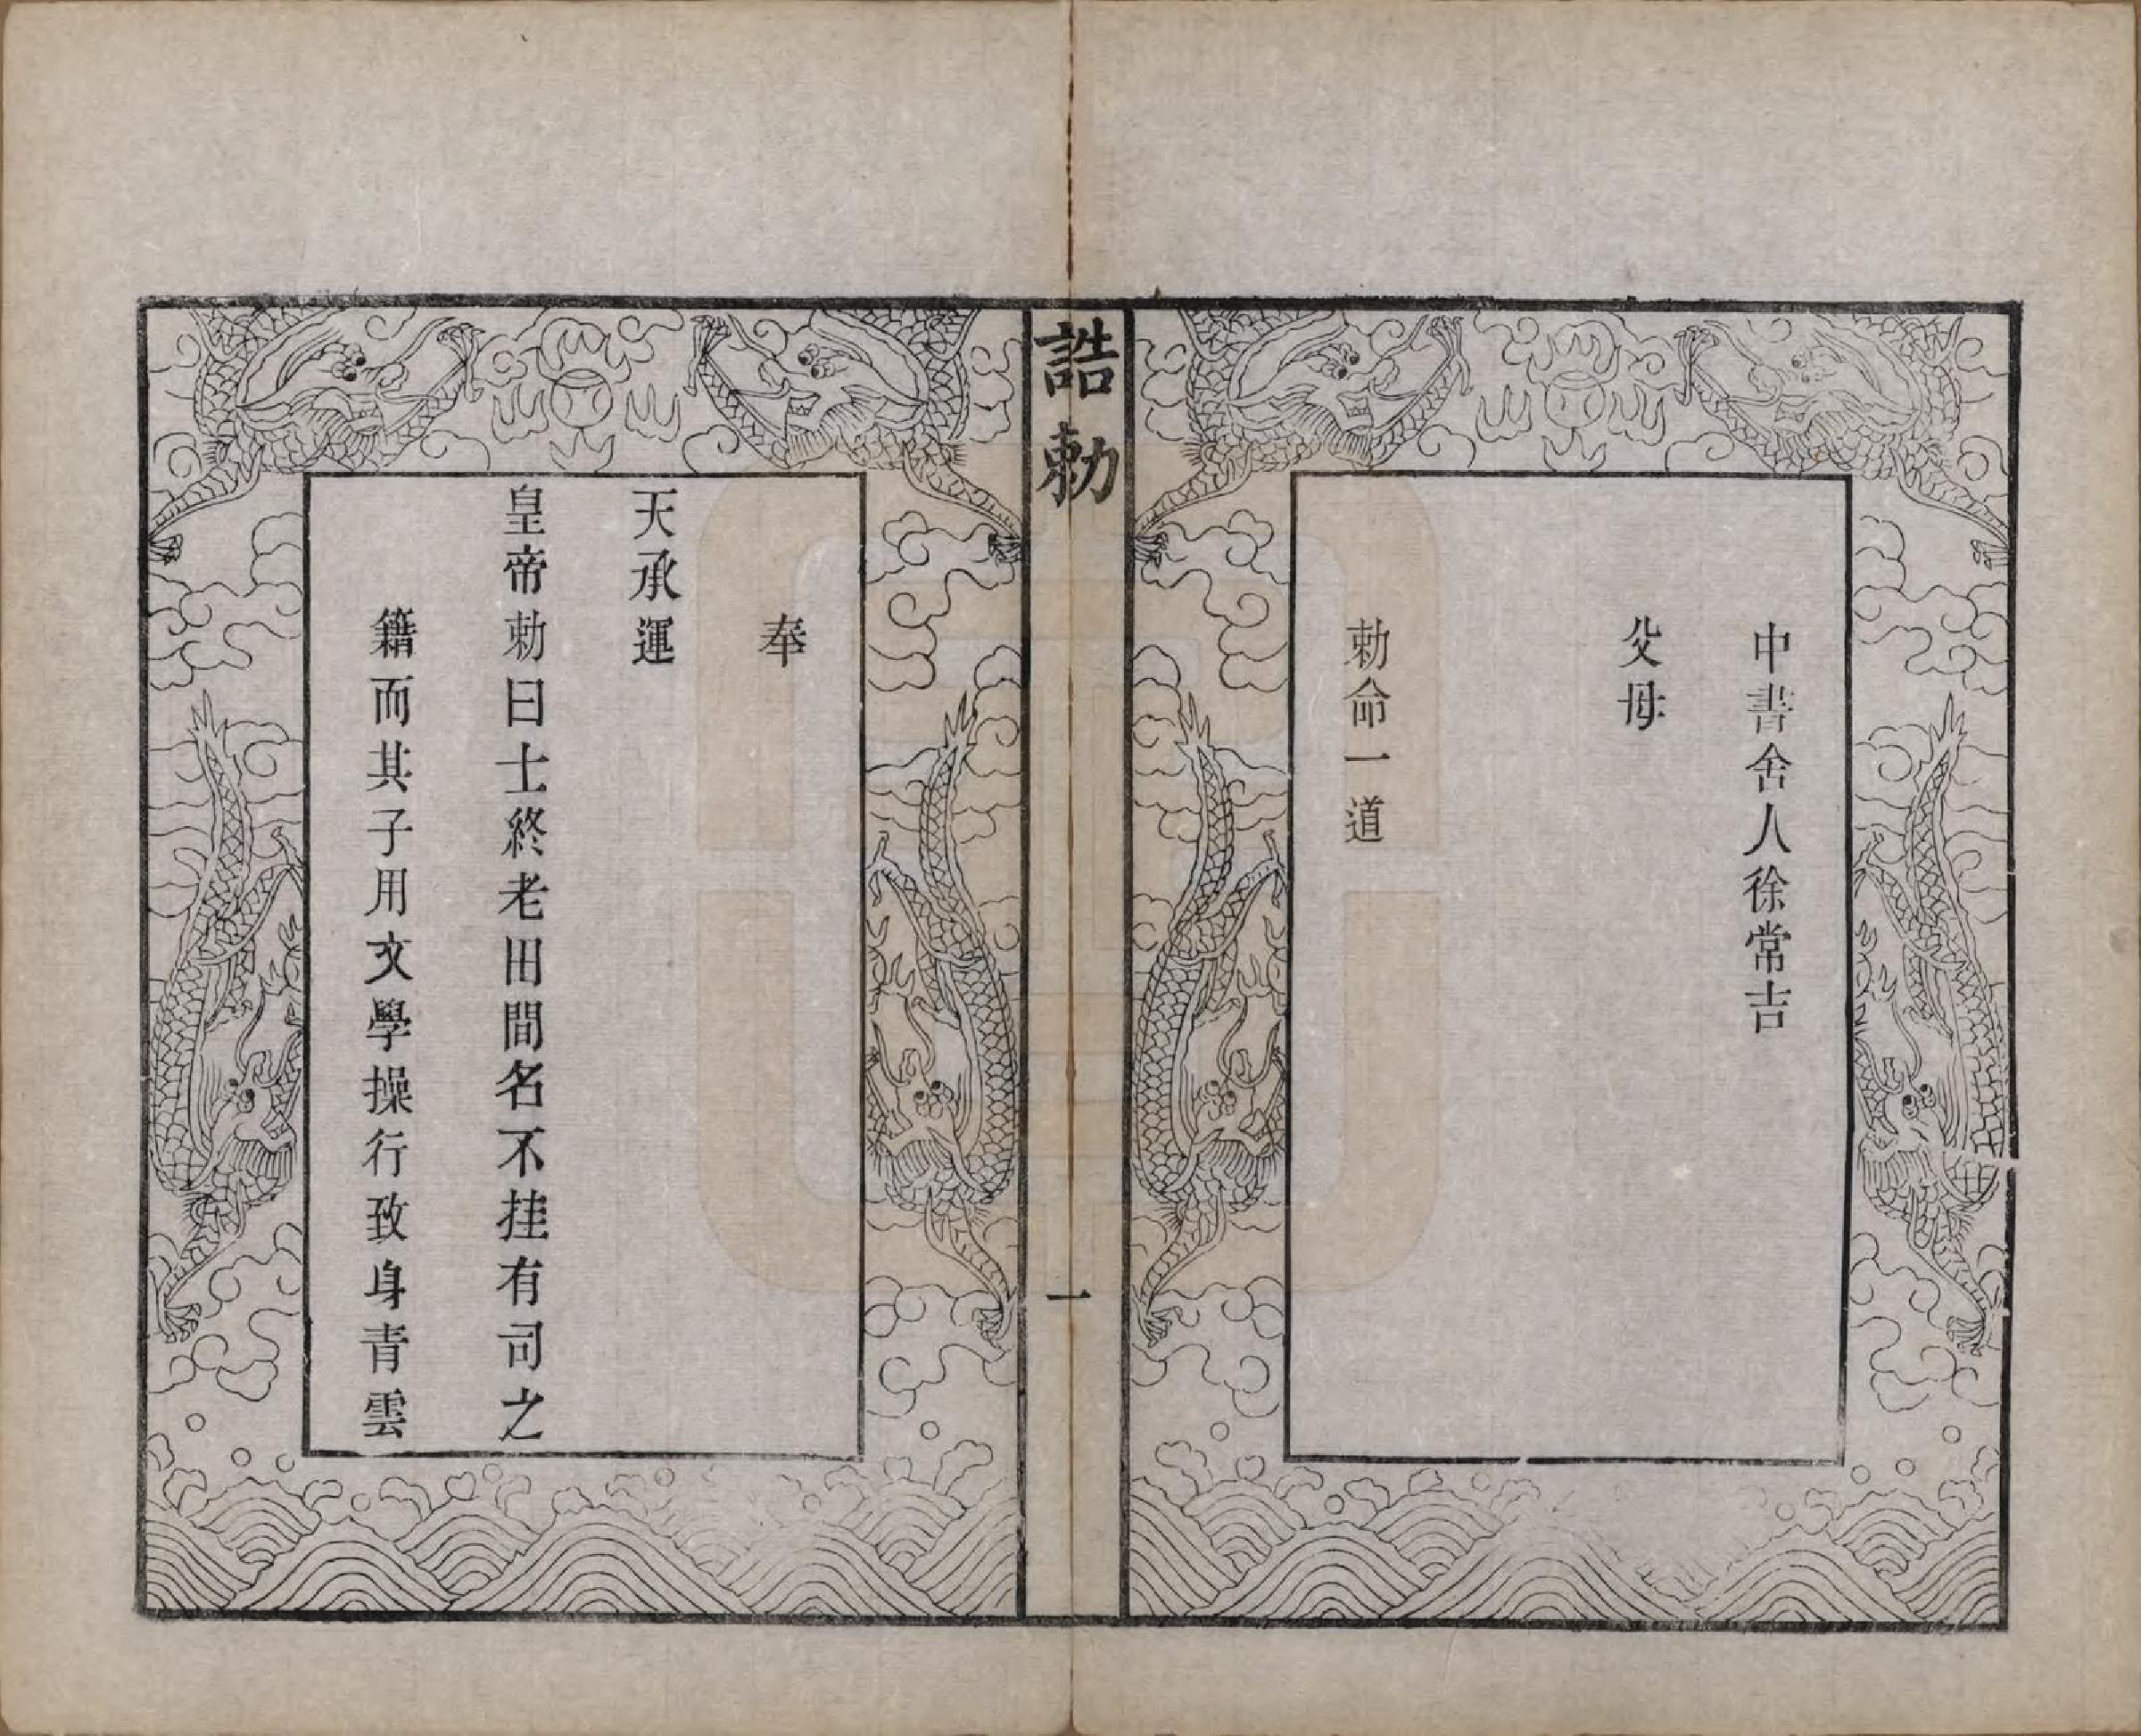 中書舍人徐常吉
父母
勅命一道
誥勅
一
奉
天承運
皇帝勅曰士終老田間名不挂有司之
籍而其子用文學操行致身青雲